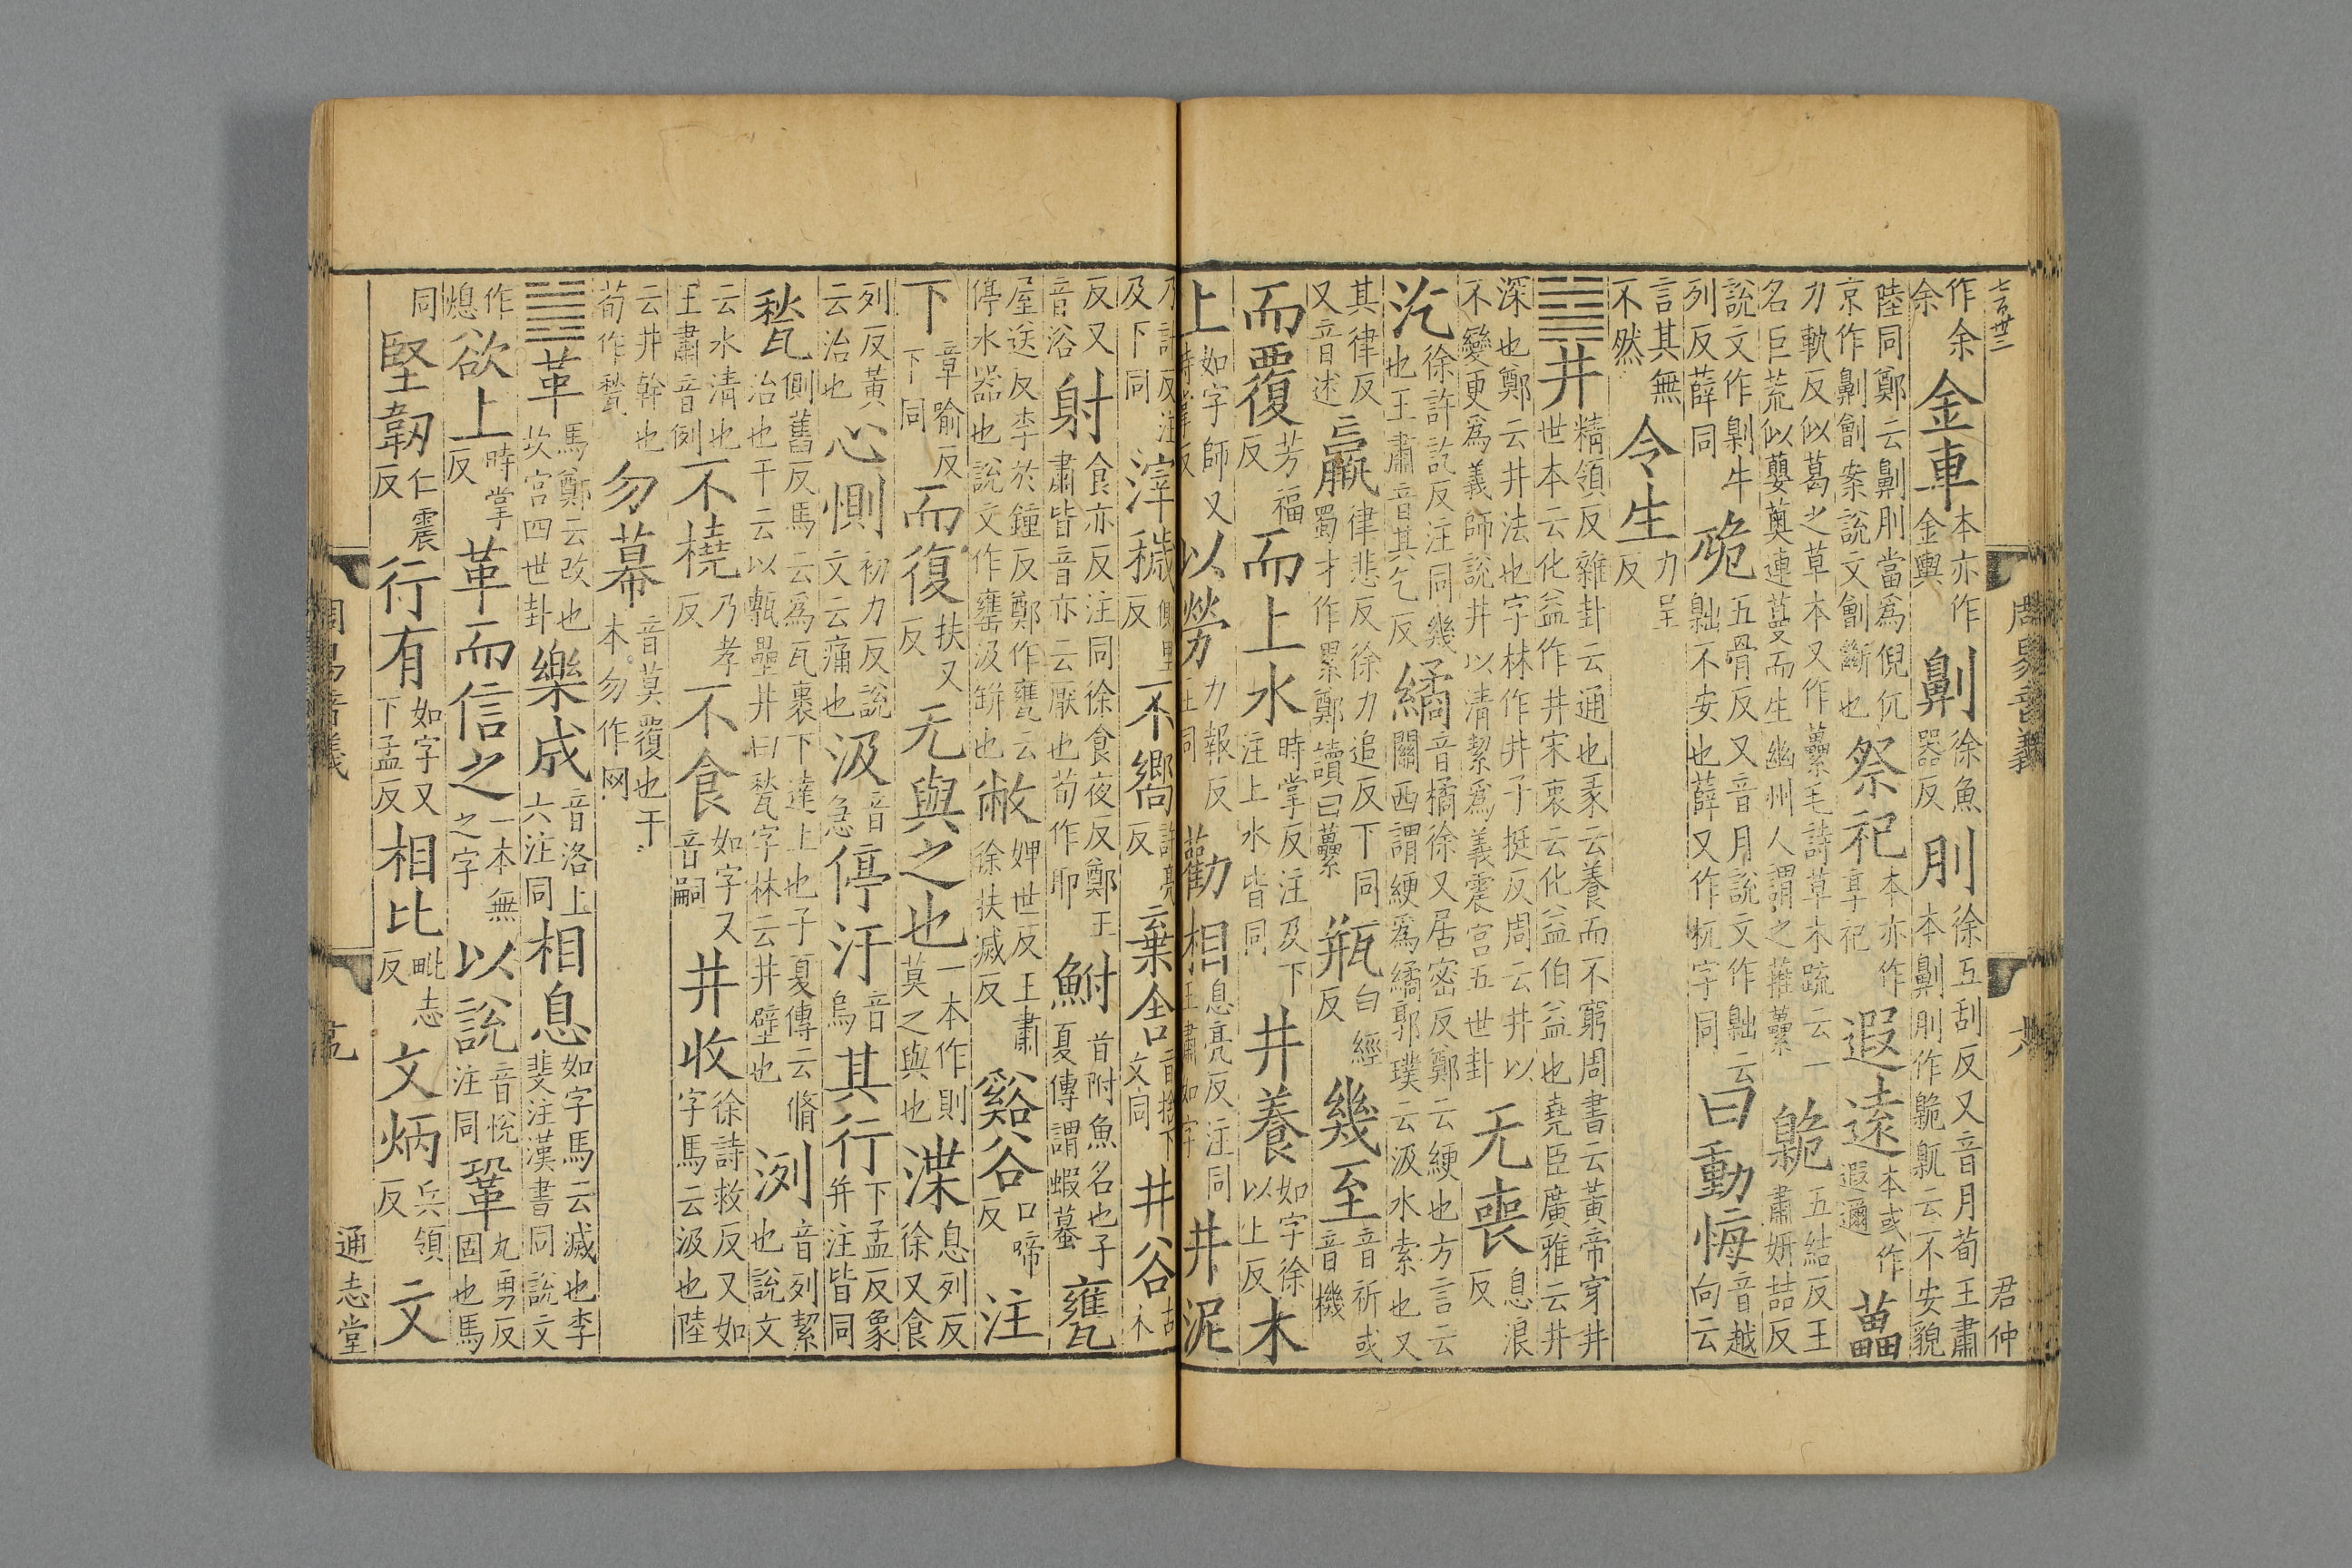 七百卅三 周易音義 君仲
作余余金車本亦作金輿劓徐魚器反刖徐五刮反又音月荀王肅本劓刖作臲𡰈云不安貌
陸同鄭云劓刖當爲倪㐳京作劓劊案說文劊斷也祭祀本亦作享祀遐遠本或作遐邇藟
力軌反似葛之草本又作虆毛詩草木疏云一名巨荒似蘡薁連蔓而生幽州人謂之蓷虆臲五結反王肅妍喆反
說文作劓牛列反薛同卼五骨反又音月說文作𡰈云𡰈不安也薛又作杌字同曰動悔音越向云
言其無不然令生力呈反
䷯井精領反雜卦云通也彖云養而不窮周書云黃帝穿井世本云化益作井宋衷云化益伯益也堯臣廣雅云井
深也鄭云井法也字林作丼子挺反周云井以不變更爲義師說井以清絜爲義震宮五世卦无喪息浪反
汔徐許訖反注同幾也王肅音其乞反繘音橘徐又居密反鄭云綆也方言云關西謂綆爲繘郭璞云汲水索也又
其律反又音述羸律悲反徐力追反下同蜀才作累鄭讀曰虆瓶白經反幾至音祈或音機
而覆芳福反而上水時掌反注及下注上水皆同井養如字徐以上反木
上如字師又時掌反以勞力報反注同勸相息亮反注同王肅如字井泥
乃計反注及下同滓穢側里反不嚮許亮反棄舍音捨下文同井谷古木
反又音浴射食亦反注同徐食夜反鄭王肅皆音亦云厭也荀作耶鮒音附魚名也子夏傳謂蝦蟇甕
屋送反李於鍾反鄭作甕云停水器也說文作罋汲缾也敝婢世反王肅徐扶滅反谿谷口啼反注
下章喻反下同而復扶又反无與之也一本作則莫之與也渫息列反徐又食
列反黃云治也心惻初力反說文云痛也汲音急停汙音烏其行下孟反象并注皆同
甃側舊反馬云爲瓦裹下達上也子夏傳云脩治也干云以甎壘井曰甃字林云井壁也洌音列絜也說文
云水清也王肅音例不橈乃孝反不食如字又音嗣井收徐詩救反又如字馬云汲也陸
云井幹也荀作甃勿幕音莫覆也干本勿作网
䷰革馬鄭云改也坎宮四世卦樂成音洛上六注同相息如字馬云滅也李斐注漢書同說文
作熄欲上時掌反革而信之一本無之字以說音悅注同鞏九勇反固也馬
同堅韌仁震反行有如字又下孟反相比毗志反文炳兵領反文
周易音義 通志堂